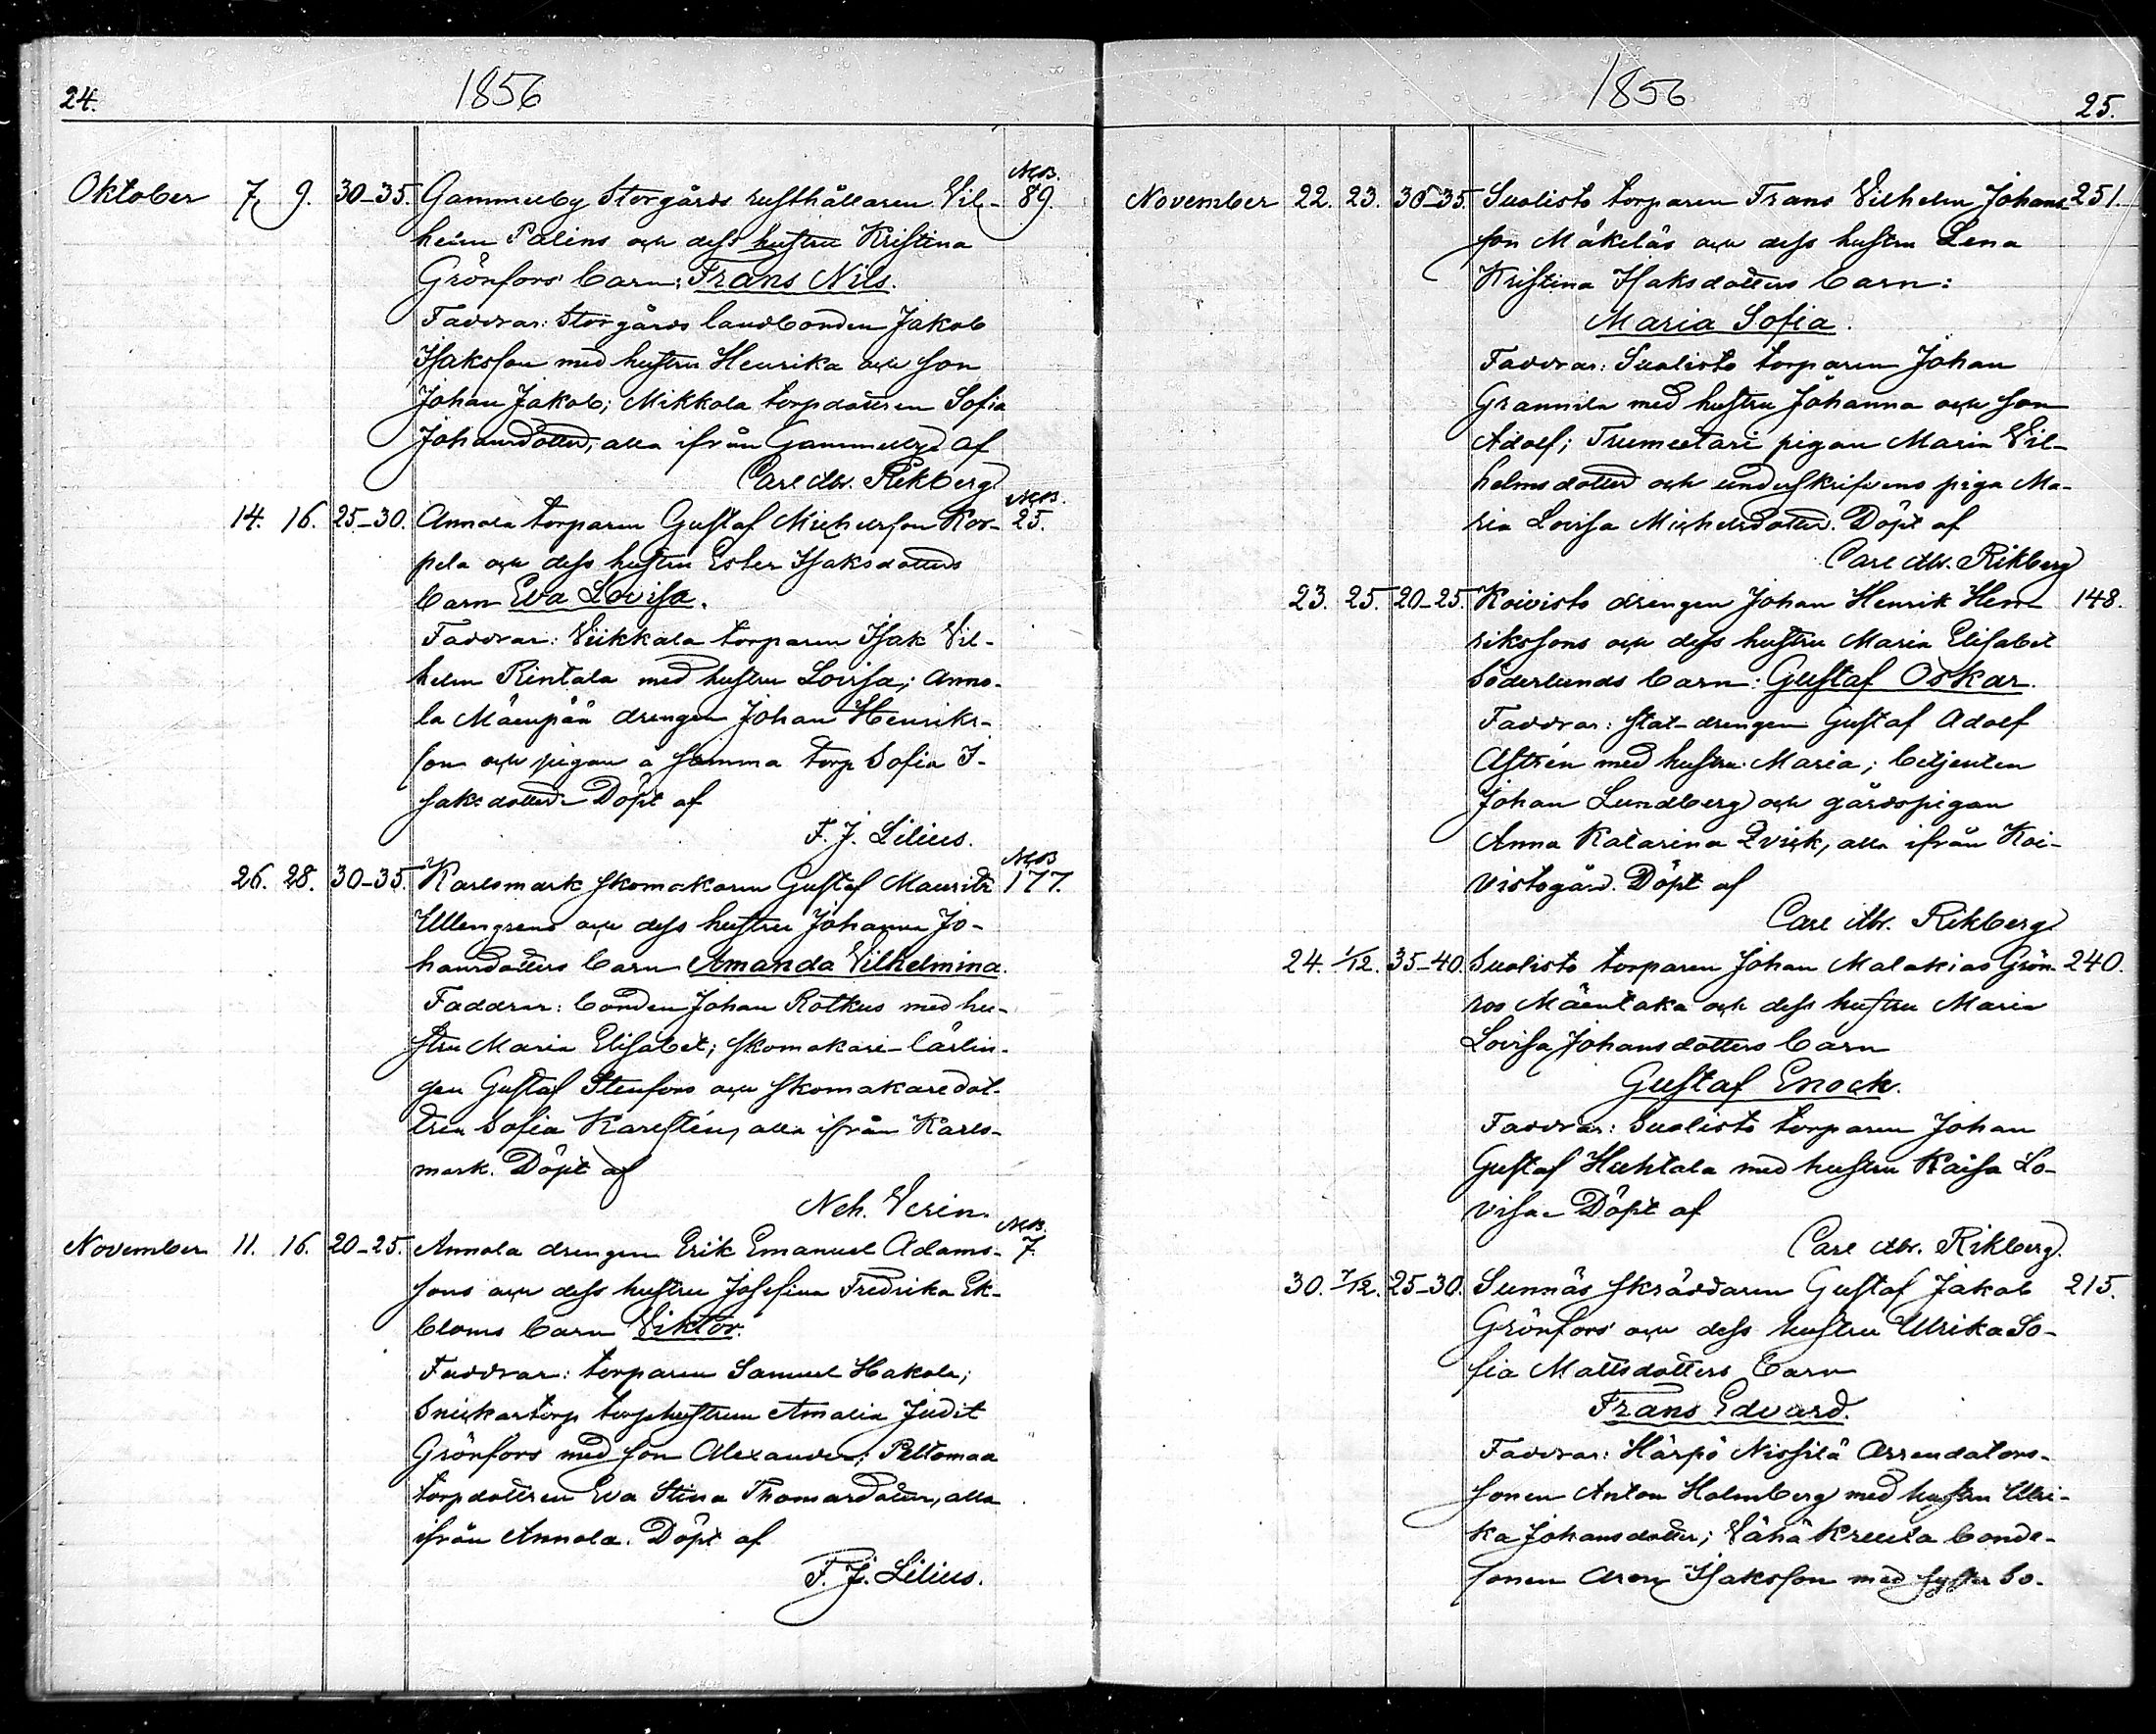 24.
1856
Oktober 7. 9. 30-35. Gammelby Storgårds rusthållaren Vil- N.B. 89.
helm Palins och dess hustru Kristina
Grönfors barn: Frans Nils.
Faddrar: Storgårds landbonden Jakob
Isaksson med hustru Henrika och son
Johan Jakob; Mikkola torpdottren Sofia
Johansdotter, alla ifrån Gammelby af
Carl Rikberg.
14. 16. 25-30. Annola torparen Gustaf Michelsson Kor- N.B. 25.
pela och dess hustru Ester Isaksdotters
barn Eva Lovisa.
Faddrar: Viikkala torparen Isak Vil-
helm Rintala med hustru Lovisa; Anno-
la Mäenpää drengen Johan Henriks-
son och pigan å samma torp Sofia I-
saksdotter. Döpt af
F. J. Lilius.
26. 28. 30-35. Karlsmark skomakaren Gustaf Mauritz N.B. 177.
Ullengrens och dess hustru Johanna Jo-
hansdotters barn Amanda Vilhelmina.
Faddrar: bonden Johan Rotkus med hu-
stru Maria Elisabet; skomakare-lärlin-
gen Gustaf Stenfors och skomakaredot-
tren Sofia Karlstén, alla ifrån Karls-
mark. Döpt af
Neh. Verin.
November 11. 16. 20-25. Annola drengen Erik Emanuel Adams- N.B. 7.
sons och dess hustru Josefina Fredrika Ek-
bloms barn Viktor.
Faddrar: torparen Samuel Hakola;
Snickartorp torphustrun Amalia Judit
Grönfors med son Alexander; Peltomaa
torpdottren Eva Stina Thomasdotter, alla
ifrån Annola. Döpt af
F. J. Lilius.
1856
25.
November 22. 23. 30-35. Suolisto torparen Frans Vilhelm Johans- 251.
son Mäkeläs och dess hustru Lena
Kristina Isaksdotters barn:
Maria Sofia.
Faddrar: Suolisto torparen Johan
Grannila med hustru Johanna och son
Adolf; Trumetari pigan Maria Vil-
helmsdotter och underskrifvens piga Ma-
ria Lovisa Michelsdotter. Döpt af
Carl Rikberg
23. 25. 20-25. Koivisto drengen Johan Henrik Hen- 148.
rikssons och dess hustru Maria Elisabet
Söderlunds barn: Gustaf Oskar.
Faddrar: stat-drengen Gustaf Adolf
Astrén med hustru Maria; betjenten
Johan Lundberg och gårdspigan
Anna Katarina Qvick, alla ifrån Koi-
vistogård. Döpt af
Carl Rikberg.
24. 1/12. 35-40. Suolisto torparen Johan Malakias Grön- 240.
ros Mäentaka och dess hustru Maria
Lovisa Johansdotters barn
Gustaf Enock.
Faddrar: Suolisto torparen Johan
Gustaf Huhtala med hustru Kaisa Lo-
visa. Döpt af
Carl Rikberg.
30. 7/12. 25-30. Sunnäs skräddaren Gustaf Jakob 215.
Grönfors och dess hustru Ulrika So-
fia Mattsdotters barn
Frans Edvard.
Faddrar: Härpö Nissilä Arrendators-
sonen Anton Holmberg med hustru Ulri-
ka Johansdotter; Vähä Kreula bonde-
sonen Aron Isaksson med syster So-